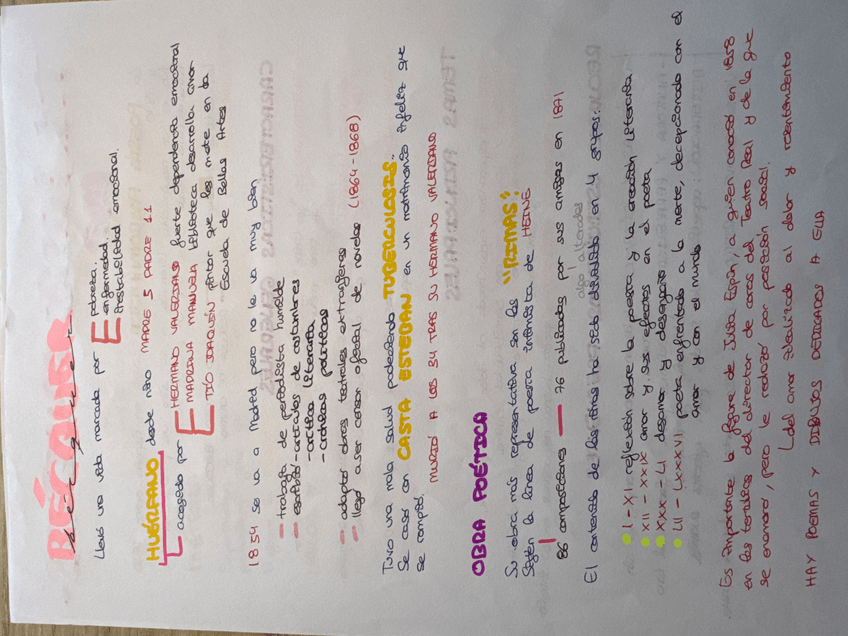 BÉCQUER
bécquer
Llevó una vida marcada por
pobreza.
enfermedad.
Inestabilidad emocional.
HUÉRFANO desde niño MADRE 5 PADRE 11
acogido por
HERMANO VALERIANO fuerte dependencia emocional
MADRINA MANUELA biblioteca desarrolla amor
TÍO JOAQUÍN pintor que les mete en la
Escuela de Bellas Artes
1854 se va a Madrid pero no le va muy bien
- trabaja de periodista humilde
- escribió - artículos de costumbres
- crítica literaria
- crónicas políticas
- adaptó obras teatrales extranjeras
- llegó a ser censor oficial de novelas (1864-1868)
Tuvo una mala salud padeciendo TUBERCULOSIS.
Se casó con CASTA ESTEBAN en un matrimonio infeliz que
se rompió.
MURIÓ A LOS 34 TRAS SU HERMANO VALERIANO
OBRA POÉTICA
Su obra más representativa son las "RIMAS":
Siguen la línea de poesía intimista de HEINE
86 composiciones — 76 publicadas por sus amigos en 1871
algo alteradas
El contenido de las rimas ha sido dividido en 4 grupos:
I - XI reflexión sobre la poesía y la creación literaria
XII - XXIX amor y sus efectos en el poeta
XXX - LI desamor y desengaño
LII - LXXXVI poeta enfrentado a la muerte, decepcionado con el
amor y con el mundo
Es importante la figura de Julia Espín, a quien conoció en 1858
en las tertulias del director de coros del Teatro Real y de la que
se enamoró, pero le rechazó por posición social.
del amor idealizado al dolor y resentimiento
HAY POEMAS Y DIBUJOS DEDICADOS A ELLA